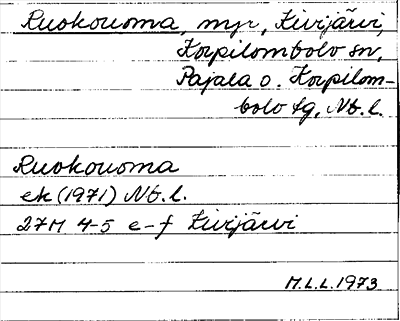 Ruokouoma, myr, Kivijärvi,
Korpilombolo sn,
Pajala o. Korpilom-
bolo tg, Nb. l.
Ruokouoma
ek (1971) Nb. l.
27M 4-5 e-f Kivijärvi
M.L.L. 1973